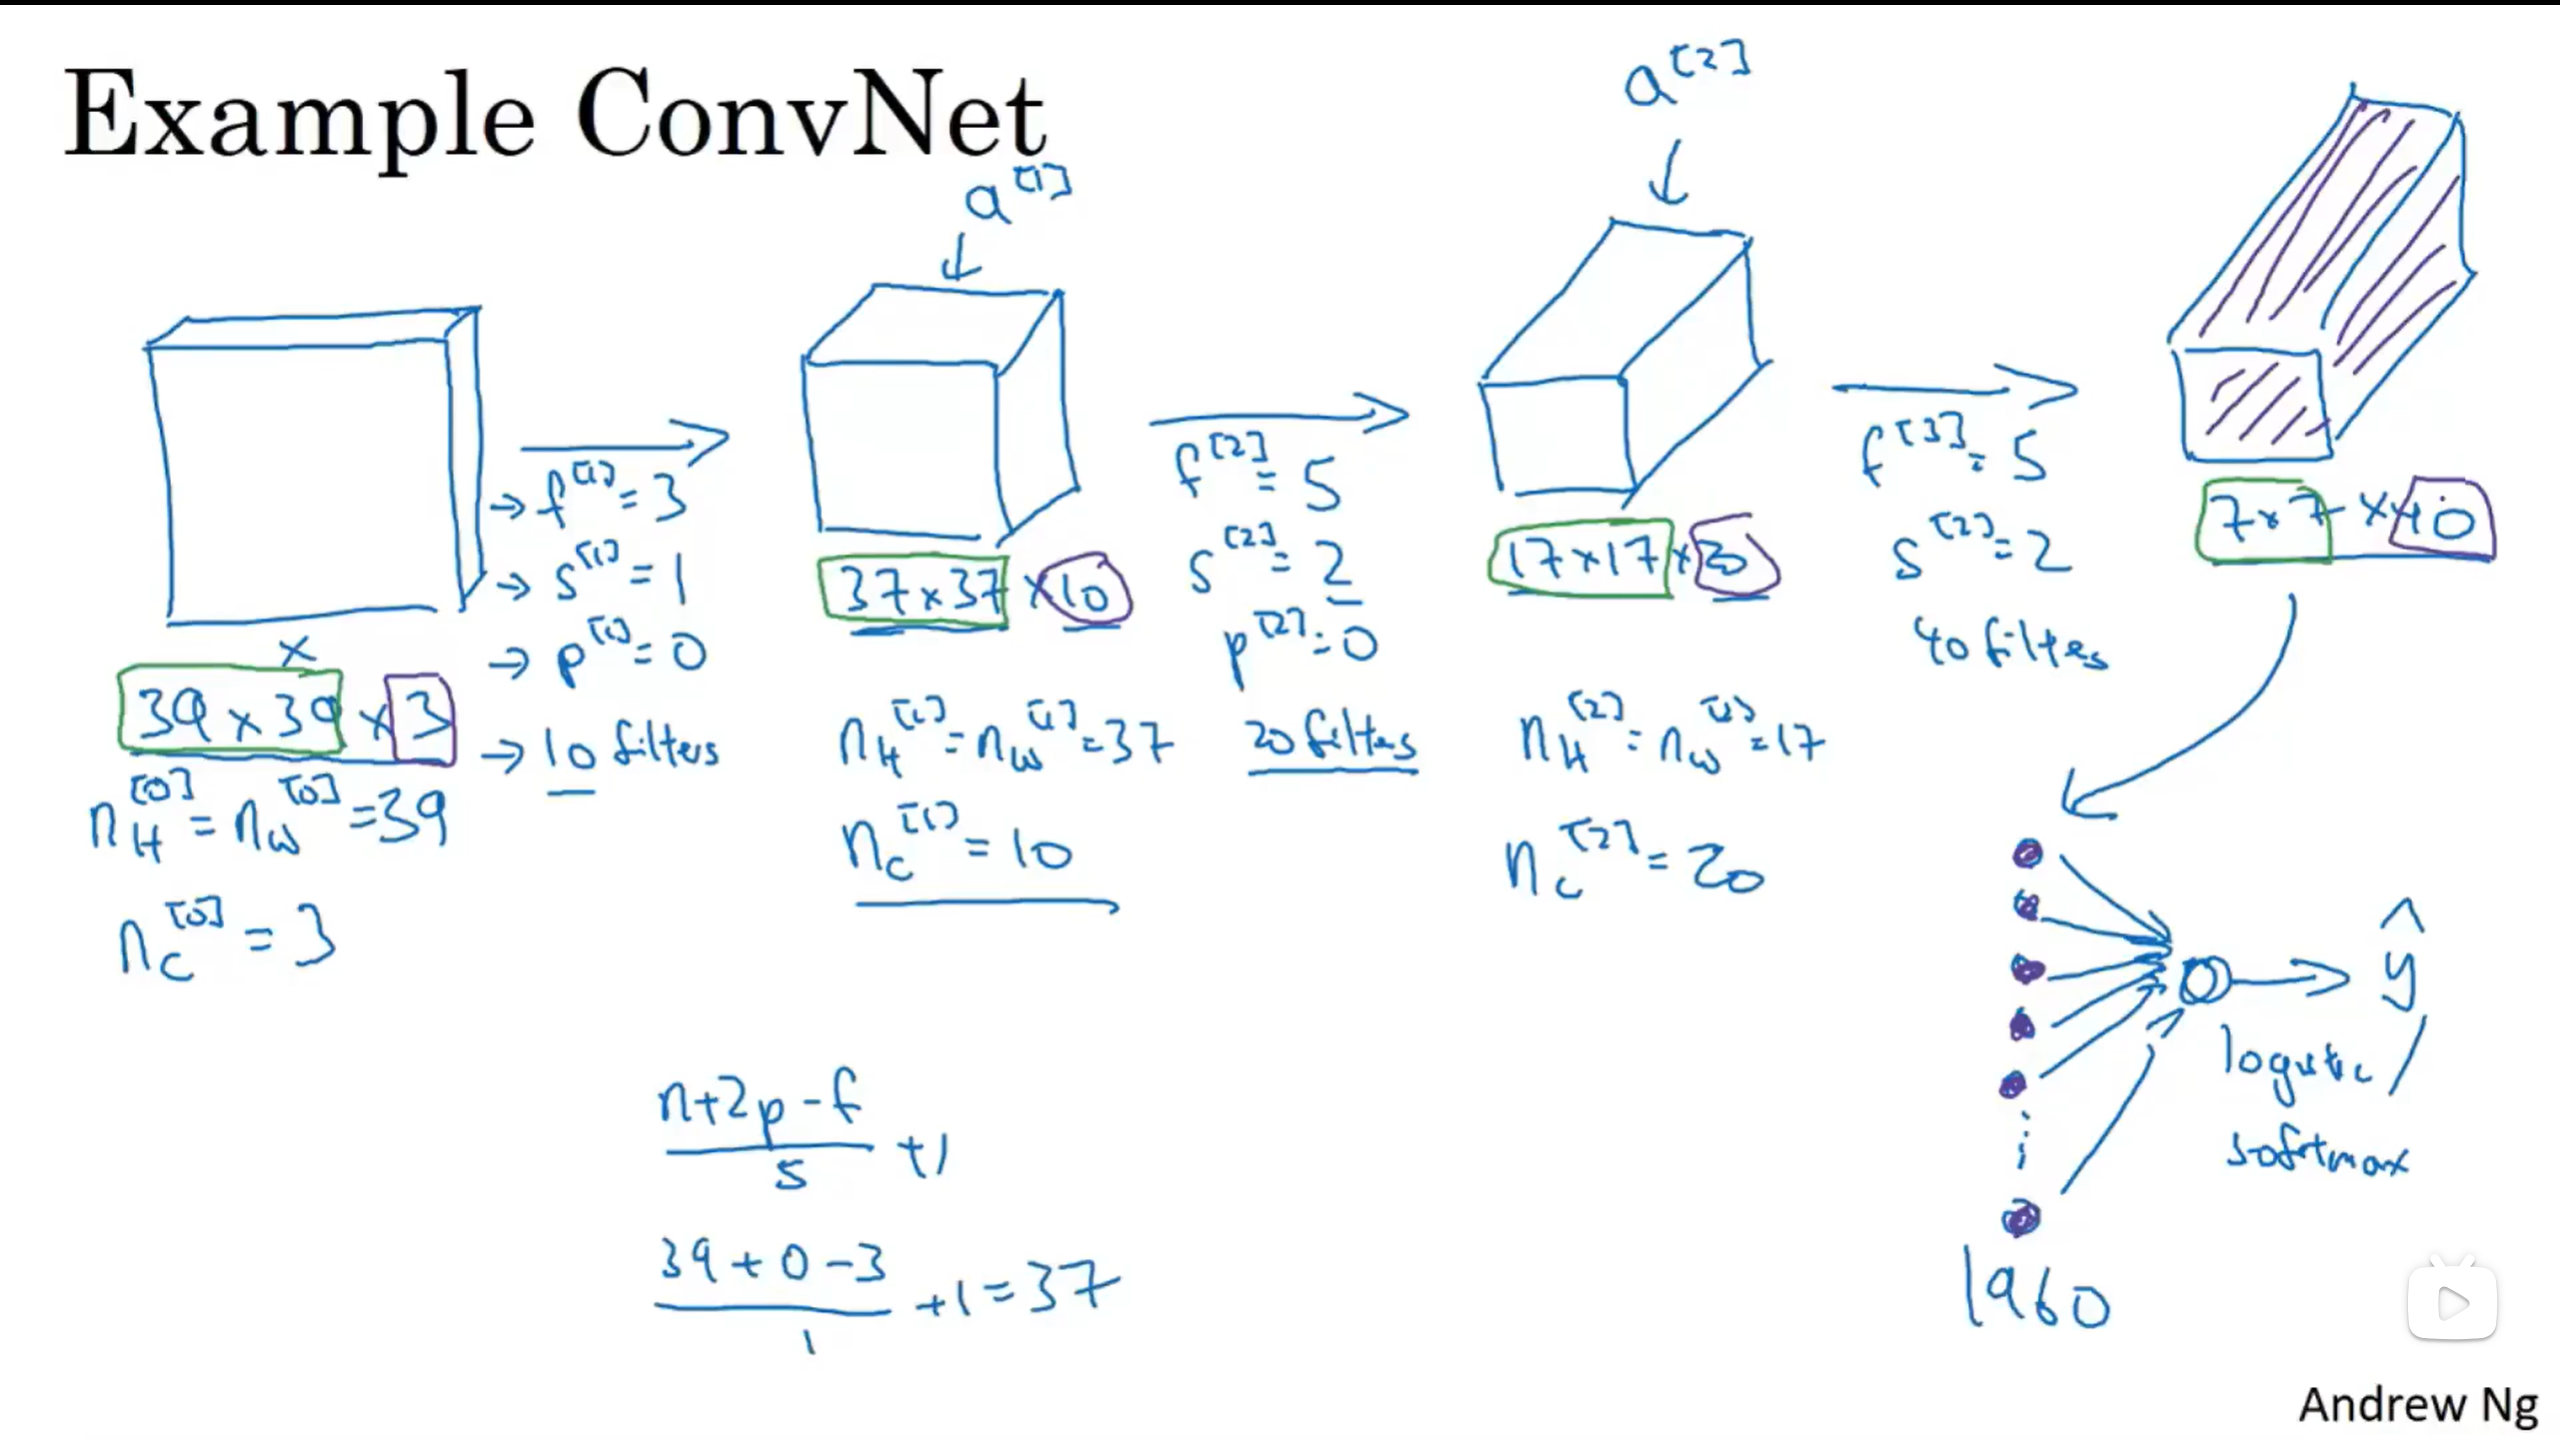 Example ConvNet
a^[1]
a^[2]
x
39 x 39 x 3
n_H^[0] = n_W^[0] = 39
n_C^[0] = 3
→ f^[1] = 3
→ s^[1] = 1
→ p^[1] = 0
→ 10 filters
37 x 37 x 10
n_H^[1] = n_W^[1] = 37
n_C^[1] = 10
f^[2] = 5
s^[2] = 2
p^[2] = 0
20 filters
17 x 17 x 20
n_H^[2] = n_W^[2] = 17
n_C^[2] = 20
f^[3] = 5
s^[2] = 2
40 filters
7 x 7 x 40
n+2p-f / s +1
39+0-3 / 1 +1 = 37
ŷ
logistic /
softmax
1960
Andrew Ng